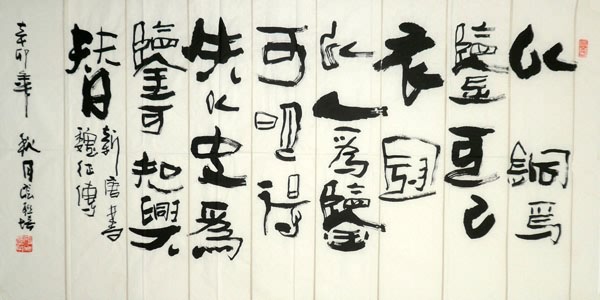 以銅為
鑒可
衣冠
以人為鑒
可明得
失以史為
鑒可知興
替
新唐書
魏征傳
辛卯年秋月